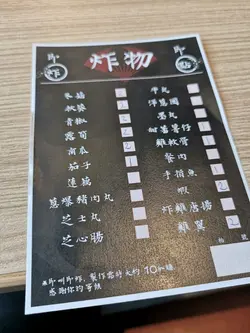 即
炸
炸物
即
點
冬菇
軟葵
青椒
露筍
南瓜
茄子
蓮藕
蔥爆豬肉丸
芝士丸
芝心腸
牛丸
洋蔥圈
墨丸
甜蕃薯仔
雞軟骨
餐肉
手指魚
蝦
炸雞唐揚
雞翼
*即叫即炸，製作需時大約10分鐘
感謝你的等候
枱號